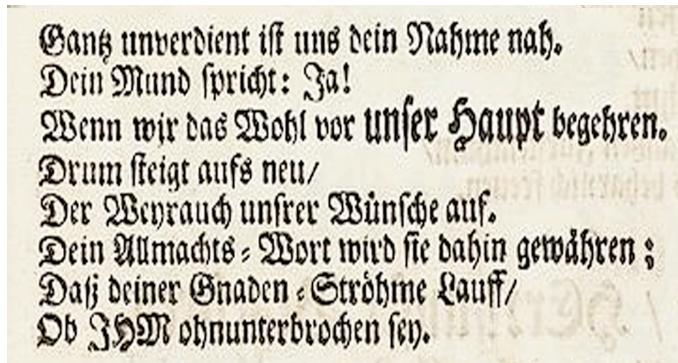 Gantz unverdient ist uns dein Nahme nah.
Dein Mund spricht: Ja!
Wenn wir das Wohl vor unser Haupt begehren.
Drum steigt aufs neu/
Der Weyrauch unsrer Wünsche auf.
Dein Allmachts-Wort wird sie dahin gewähren;
Daß deiner Gnaden-Ströhme Lauff/
Ob JHM ohnunterbrochen sey.